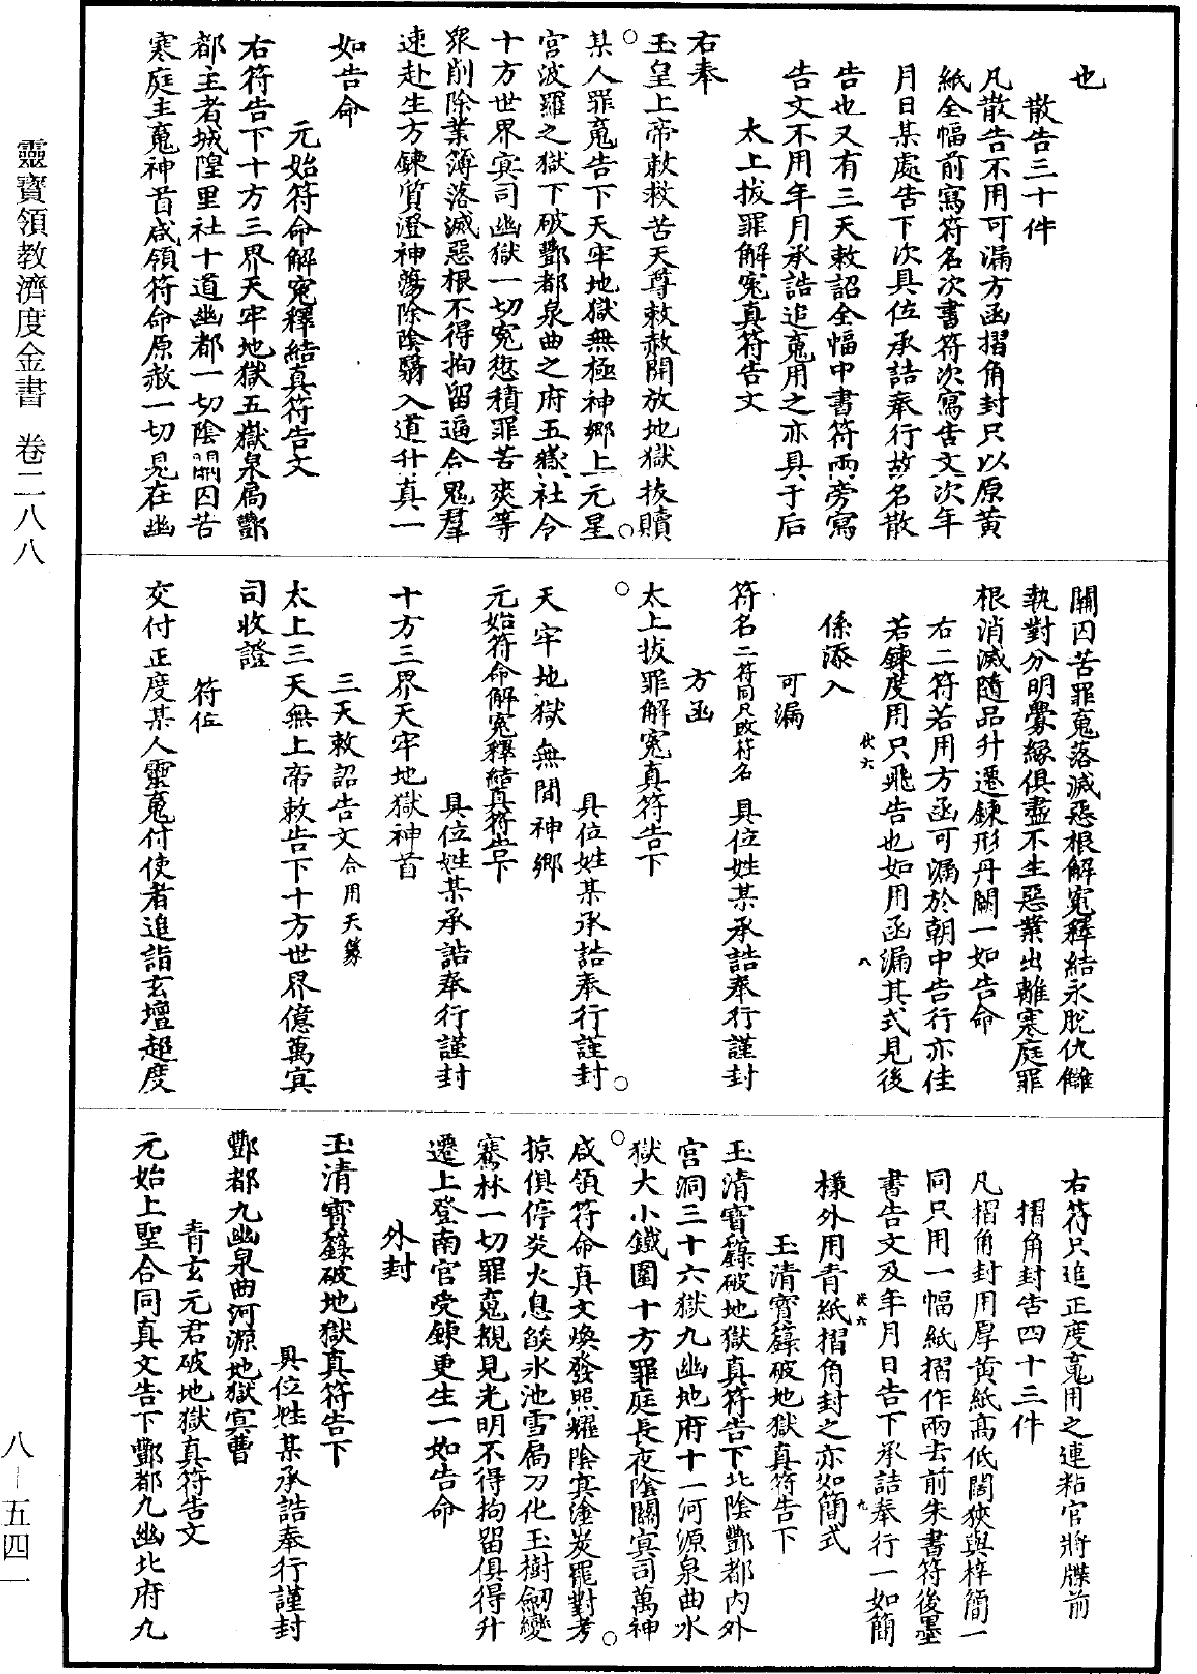 也
散告三十件
凡散告不用可漏方函摺角封只以原黄
紙全幅前寫符名次書符次寫告文次年
月日某處告下次具位承誥奉行故名散
告也又有三天敕詔全幅中書符兩旁寫
告文不用年月承誥追䰟用之亦具于后
太上拔罪解寃真符告文
右奉
玉皇上帝敕救苦天尊敕赦開放地獄拔贖
某人罪䰟告下天牢地獄無極神鄉上元星
宮波羅之獄下破酆都泉曲之府五嶽社令
十方世界㝠司幽獄一切寃愆積罪苦爽等
衆削除業簿落滅惡根不得拘留逼合䰟羣
速赴生方鍊質澄神蕩除陰翳入道升真一
如告命
元始符命解寃釋結真符告文
右符告下十方三界天牢地獄五嶽泉局酆
都主者城隍里社十道幽都一切陰關囚苦
寒庭主䰟神首咸領符命原赦一切見在幽
關囚苦罪䰟落滅惡根解寃釋結永脫仇讎
執對分明釁縁俱盡不生惡業出離寒庭罪
根消滅隨品升遷鍊形丹闕一如告命
右二符若用方函可漏於朝中告行亦佳
若鍊度用只飛告也如用函漏其式見後
伏六 八
係添入
可漏
符名二符同只改符名 具位姓某承誥奉行謹封
方函
太上拔罪解寃真符告下
具位姓某承誥奉行謹封
天牢地獄無間神鄉
元始符命解寃釋結真符告下
具位姓某承誥奉行謹封
十方三界天牢地獄神首
三天敕詔告文合用天篆
太上三天無上帝敕告下十方世界億萬㝠
司收證
符位
交付正度某人靈䰟付使者追詣玄壇超度
右符只追正度䰟用之連粘官將牒前
摺角封告四十三件
凡摺角封用厚黄紙高低闊狹與梓簡一
同只用一幅紙摺作兩去前朱書符後墨
書告文及年月日告下承誥奉行一如簡
伏六 九
樣外用青紙摺角封之亦如簡式
玉清寳籙破地獄真符告下
玉清寳籙破地獄真符告下北陰酆都内外
宮洞三十六獄九幽地府十一河源泉曲水
獄大小鐵圍十方罪庭長夜陰關㝠司萬神
咸領符命真文煥發照耀陰㝠塗炭罷對考
掠俱停炎火息燄氷池雪局刀化玉樹劒變
騫林一切罪䰟覩見光明不得拘留俱得升
遷上登南宮受鍊更生一如告命
外封
玉清寳籙破地獄真符告下
具位姓某承誥奉行謹封
酆都九幽泉曲河源地獄㝠曹
青玄元君破地獄真符告文
元始上聖合同真文告下酆都九幽北府九
靈寶領教濟度金書 卷二八八
八－五四一